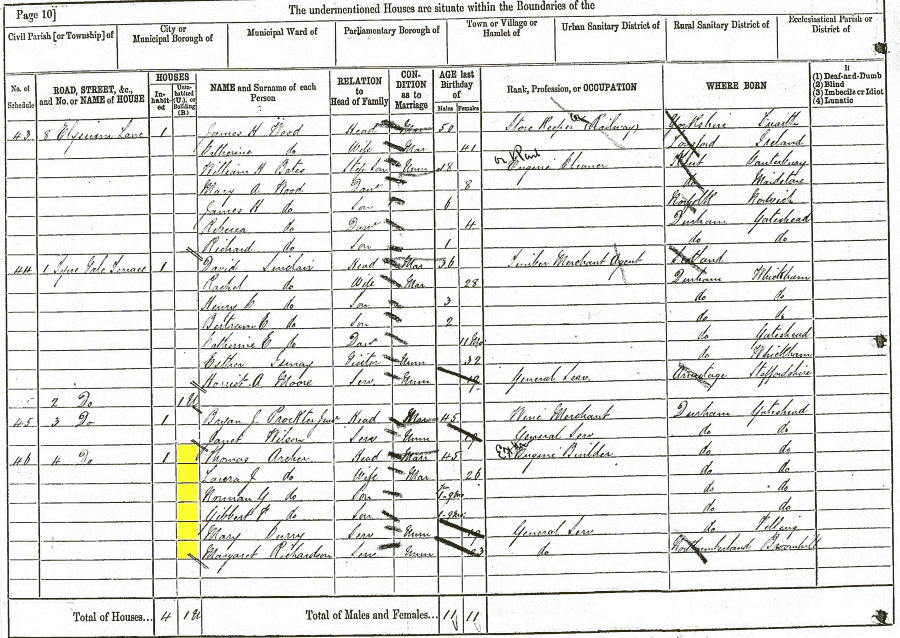 The undermentioned Houses are situate within the Boundaries of the
Page 10]
Civil Parish [or Township] of
City or Municipal Borough of
Municipal Ward of
Parliamentary Borough of
Town or Village or Hamlet of
Urban Sanitary District of
Rural Sanitary District of
Ecclesiastical Parish or District of
No. of Schedule
ROAD, STREET, &c., and No. or NAME of HOUSE
HOUSES
Inhabited
Uninhabited (U.), or Building (B.)
NAME and Surname of each Person
RELATION to Head of Family
CONDITION as to Marriage
AGE last Birthday of
Males
Females
Rank, Profession, or OCCUPATION
WHERE BORN
If
(1) Deaf-and-Dumb
(2) Blind
(3) Imbecile or Idiot
(4) Lunatic
43 8 Elysium Lane 1 James H Wood Head 50 Store Keeper (Railway) Yorkshire
Catherine do Wife Mar 41 Longford Ireland
William H Bates Step Son Unm 18 Engine Cleaner Kent Canterbury
Mary A Wood Daur 8 do Maidstone
James H do Son 6 Norfolk Norwich
Rebecca do Daur 4 Durham Gateshead
Richard do Son 1 do do
44 1 Tyne Vale Terrace 1 David Sinclair Head Mar 36 Timber Merchant Agent
Rachel do Wife Mar 28 Durham Whickham
Henry C do Son 3 do do
Bertram E do Son 2 do do
Catherine E do Daur 11 Mo do Gateshead
Esther Visitor Unm 32 do Whickham
Harriet A Moore Serv Unm 19 General Serv Armitage Staffordshire
2 Do 1 U
45 3 Do 1 Bryan J. Prockter Junr Head 45 Wine Merchant Durham Gateshead
Janet Wilson Serv Unm 19 General Serv do do
46 4 Do 1 Thomas Archer Head Mar 45 Engine Builder do do
Laura J. do Wife Mar 26 do do
Norman G do Son do do
Gibbert F do Son do do
Mary Curry Serv Unm 19 General Serv do Felling
Margaret Richardson Serv Unm 23 do Northumberland Broomhill
Total of Houses... 4 1 U
Total of Males and Females... 11 11